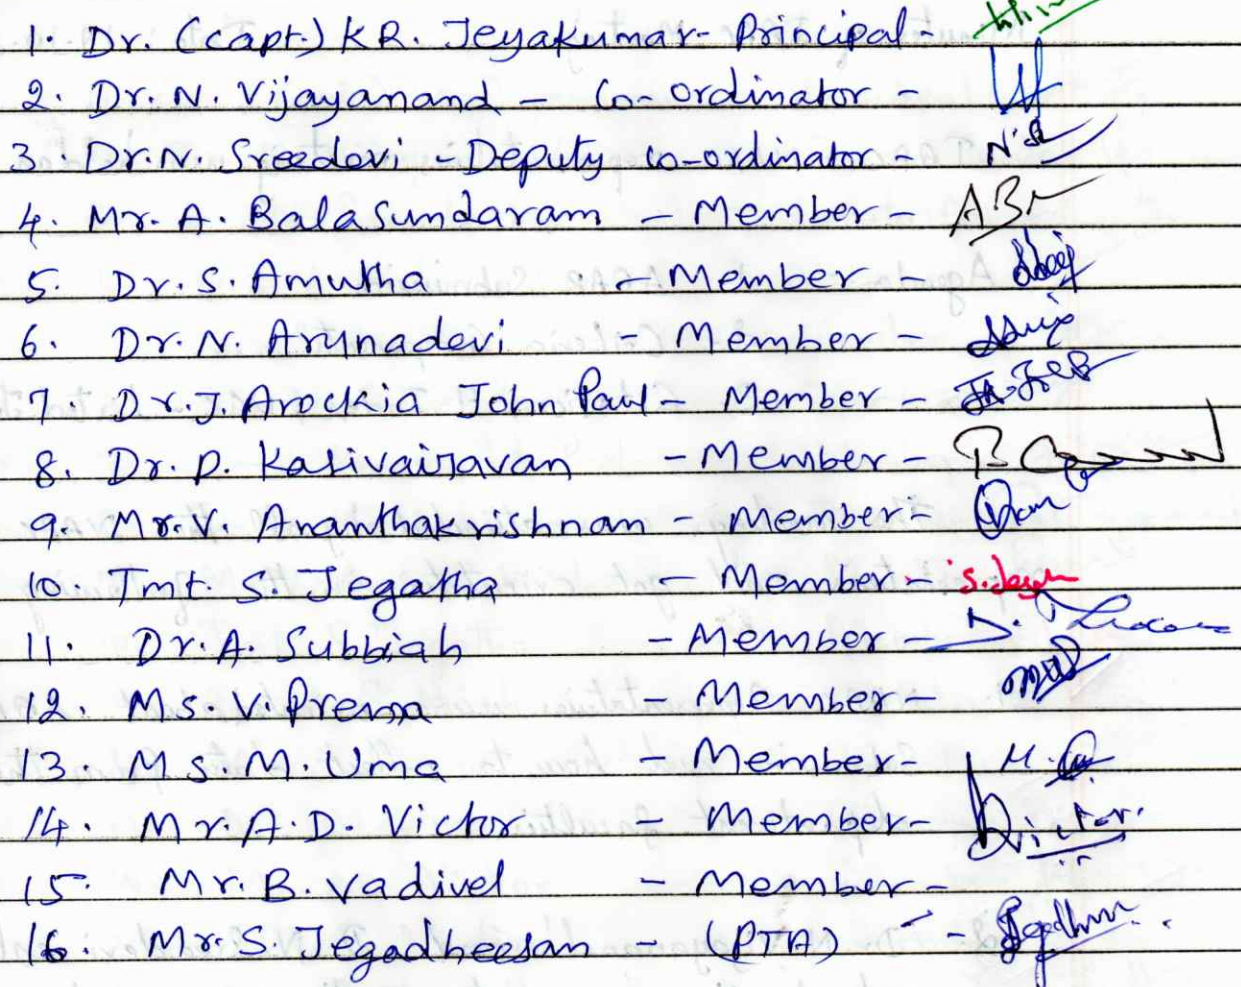 1. Dr. (capt.) KR. Jeyakumar - Principal -
2. Dr. N. Vijayanand - Co-ordinator -
3. Dr. N. Sreedevi - Deputy Co-ordinator - N.S
4. Mr. A. Balasundaram - Member -
5. Dr. S. Amutha - Member -
6. Dr. N. Arunadevi - Member -
7. Dr. J. Arockia John Paul - Member -
8. Dr. P. Kasivairavan - Member -
9. Mr. V. Ananthakrishnan - Member -
10. Tmt. S. Jegatha - Member -
11. Dr. A. Subbiah - Member -
12. Ms. V. Prema - Member -
13. Ms. M. Uma - Member -
14. Mr. A. D. Victor - Member - Victor.
15. Mr. B. Vadivel - Member -
16. Mr. S. Jegadheesan - (PTA) -